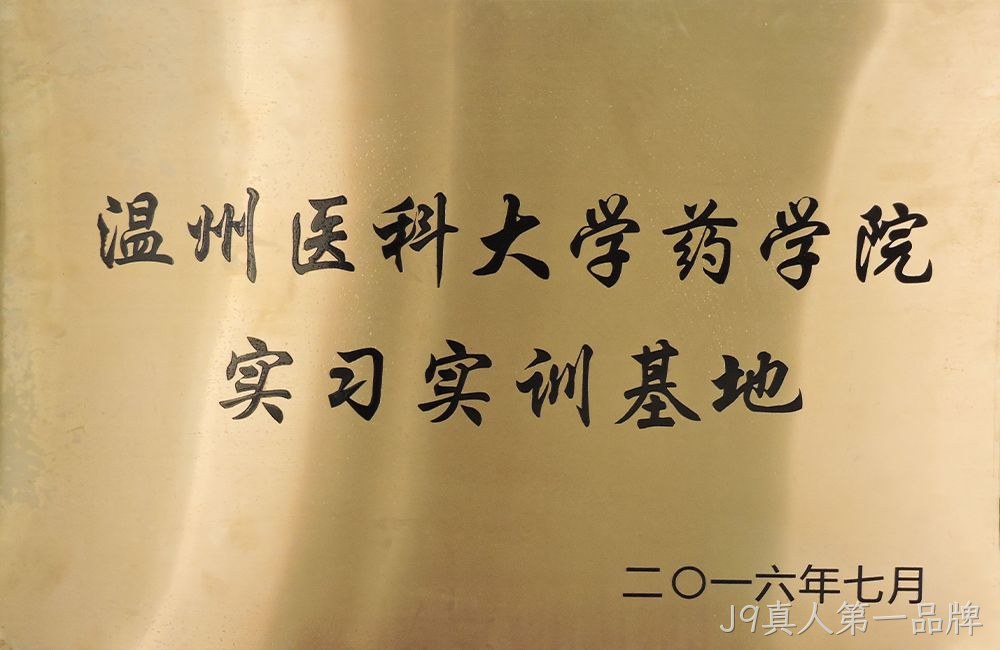 温州医科大学药学院
实习实训基地
二〇一六年七月
J9真人第一品牌